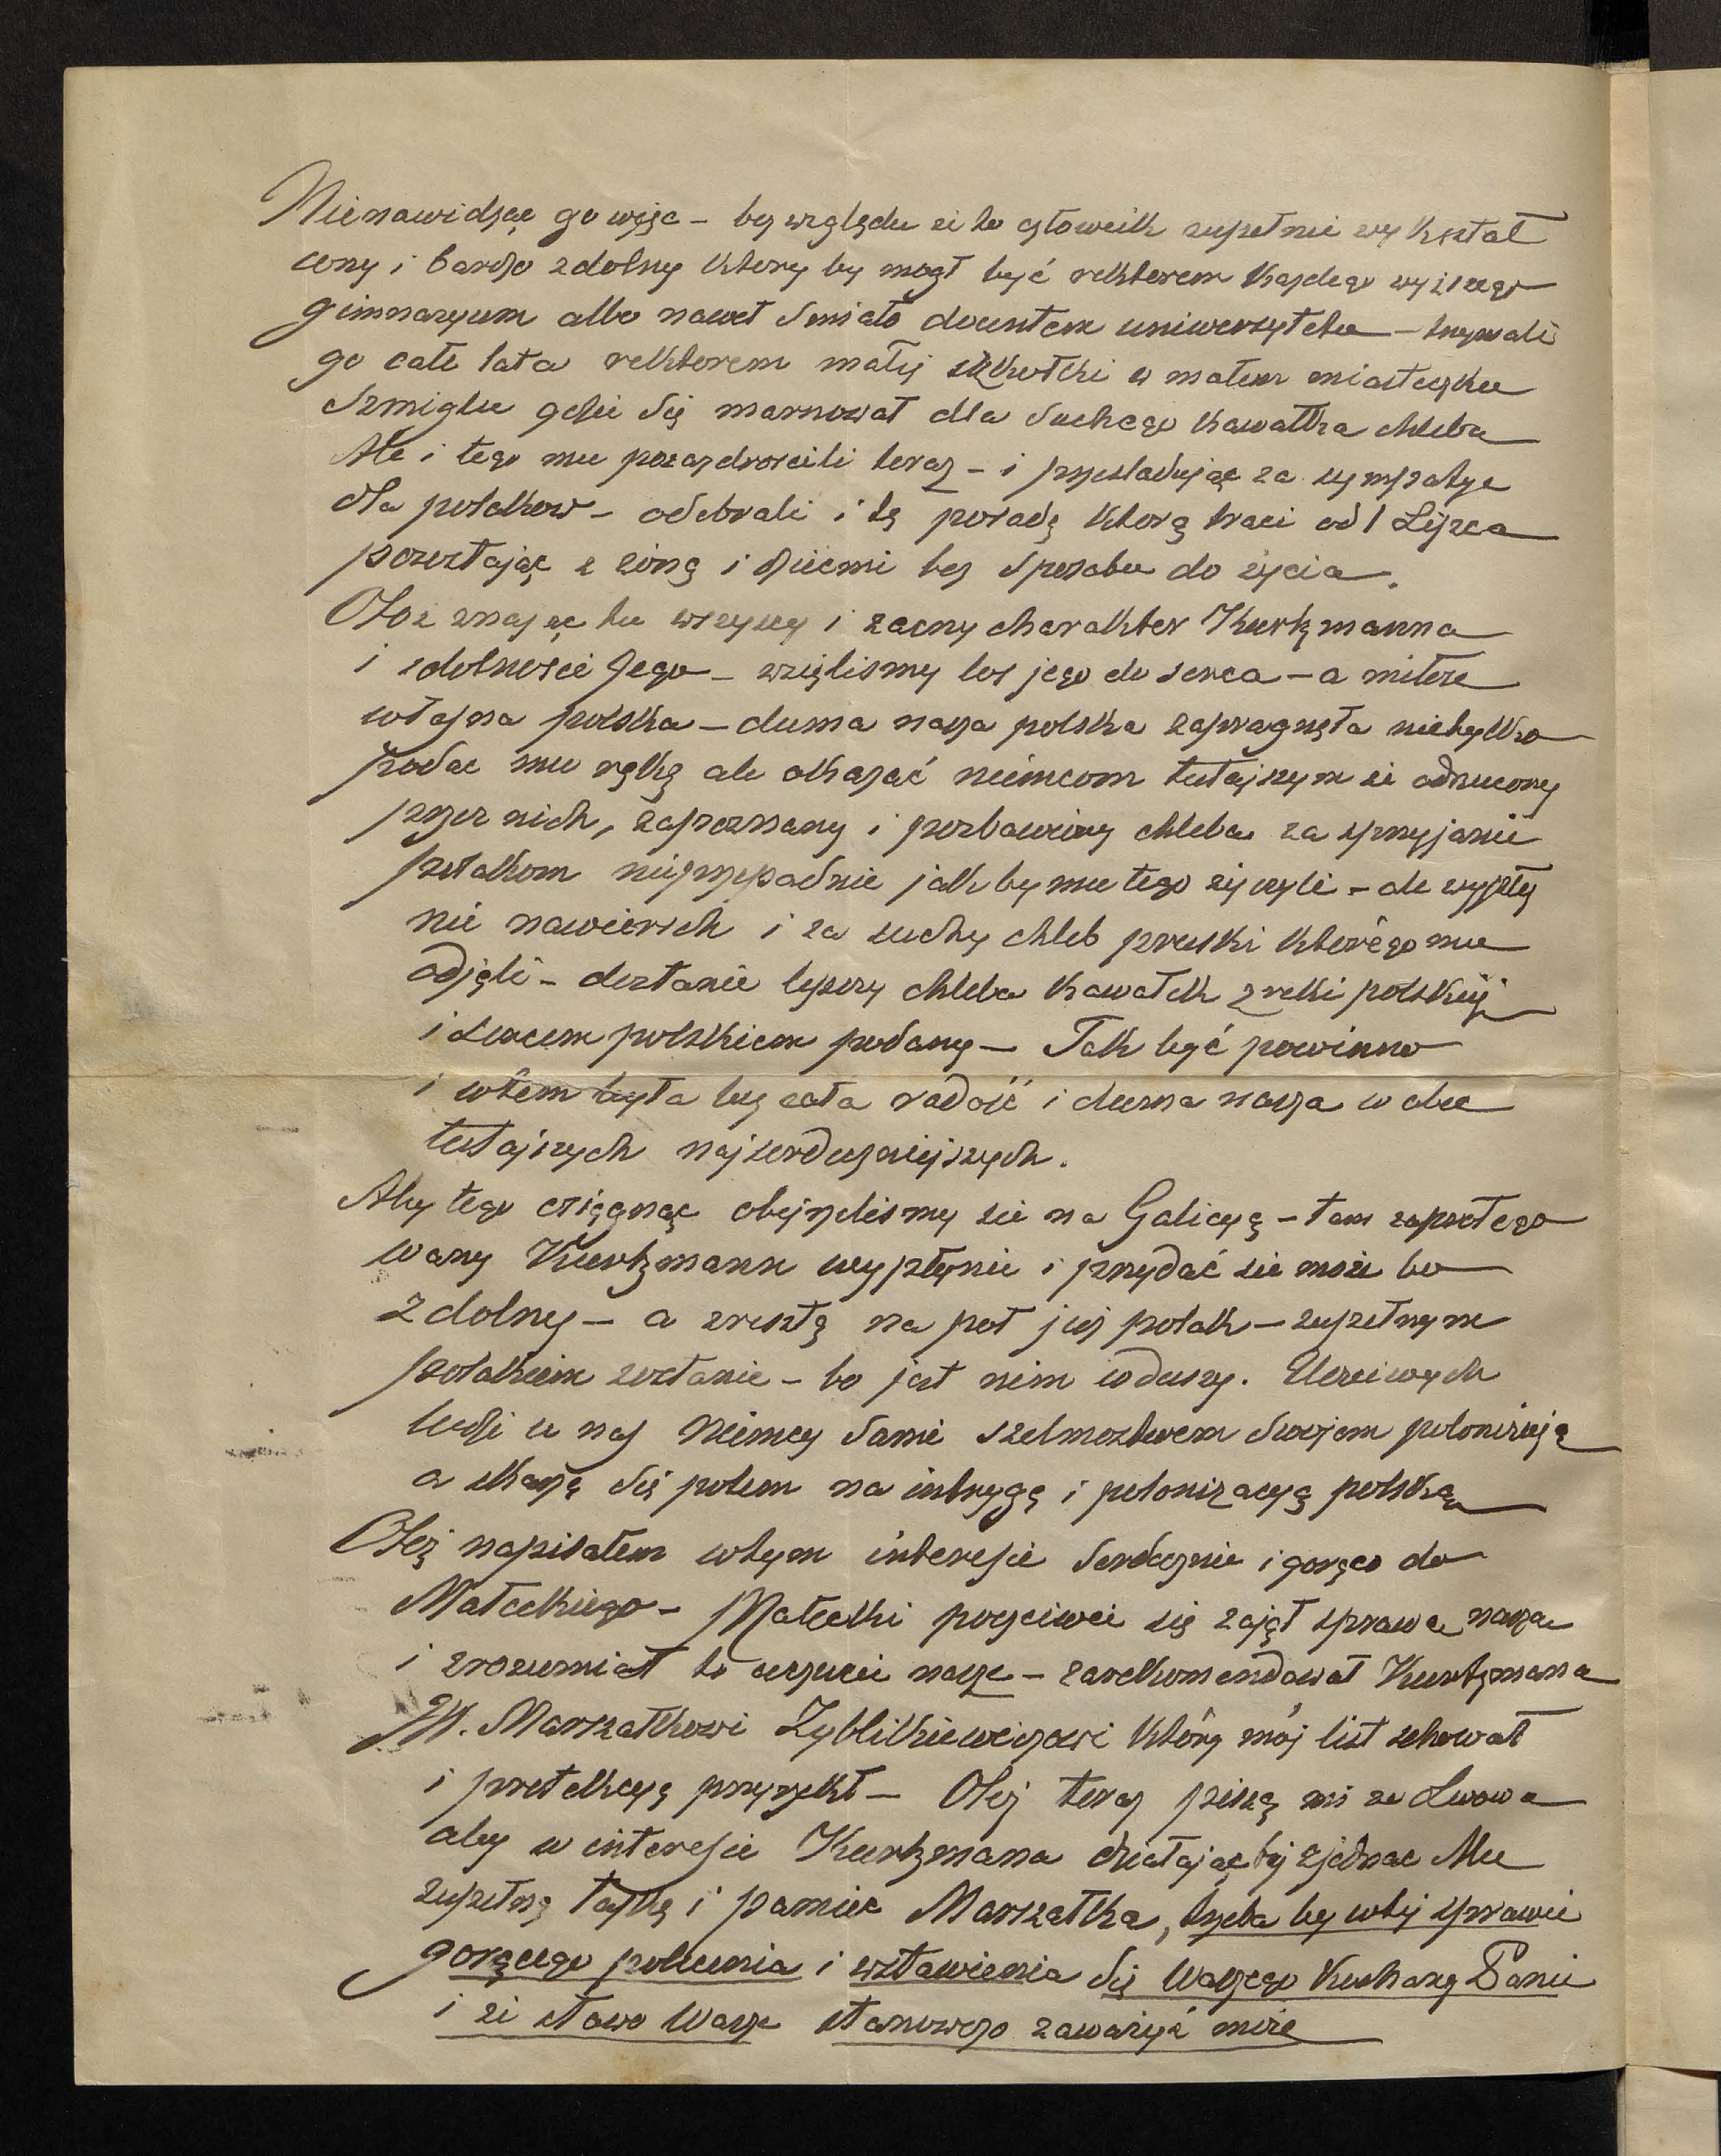 Nienawidząc go więc – bez względu że to człowiek zupełnie wykształ
cony i bardzo zdolny ktory by mogł być rektorem kazdego wyższego
gimnazyum albo nawet smiało docentem uniwersytetu – trzymali
go całe lata rektorem małej szkołki w małem miasteczku
Szmiglu gdzie się marnował dla suchego kawałka chleba
Ale i tego mu pozazdroscili teraz – i przesladując za sympatye
dla polakow – odebrali i tę posadę ktorą traci od 1 Lipca
pozostając z żoną i dziecmi bez sposobu do życia.
Otoz znając tu wszyscy i zacny charakter Kurtzmanna
i zdolnosci Jego – wzięlismy los jego do serca – a miłosc
własna polska – duma nasza polska zapragnęła nietylko
podac mu rękę ale okazać niemcom tutejszym że odrzucony
przez nich, zapoznany i pozbawiony chleba za sprzyjanie
polakom nieprzepadnie jakby mu tego życzyli – ale wypły
nie nawierzch i za suchy chleb pruski ktorego mu
odjęli – dostanie lepszy chleba kawałek z ręki polskiej
i sercem polskiem podany – Tak być powinno
i wtem była by cała radość i duma nasza w obu
tutejszych najserdeczniejszych.
Aby tego osiągnąc obejrzelismy sie na Galicyą – tam zaprotego
wany Kurtzmann wypłynie i przydać sie może bo
zdolny – a zresztą na poł juz polak – zupełnym
polakiem zostanie – bo jest nim w duszy. Uczciwych
ludzi u nas Niemcy sami szelmostwem swojem polonizują
a skarżą się potem na intrygę i polonizacyą polską
Otoż napisałem wtym interesie serdecznie i gorąco do
Małeckiego – Małecki poczciwei się zajął sprawą naszą
i zrozumiał to uczucie nasze – zarekomendował Kurtzmana
JW. Marszałkowi Zyblikiewiczowi który mój list schował
i protekcyą przyrzekł – Otoz teraz piszą mi ze Lwowa
aby w interesie Kurtzmana działając by zjednac Mu
zupełną łaskę i pamiec Marszałka, trzeba by wtej sprawie
gorącego polecenia i wstawienia się Waszego Kochany Panie
i że słowo Wasze stanowczo zaważyć może